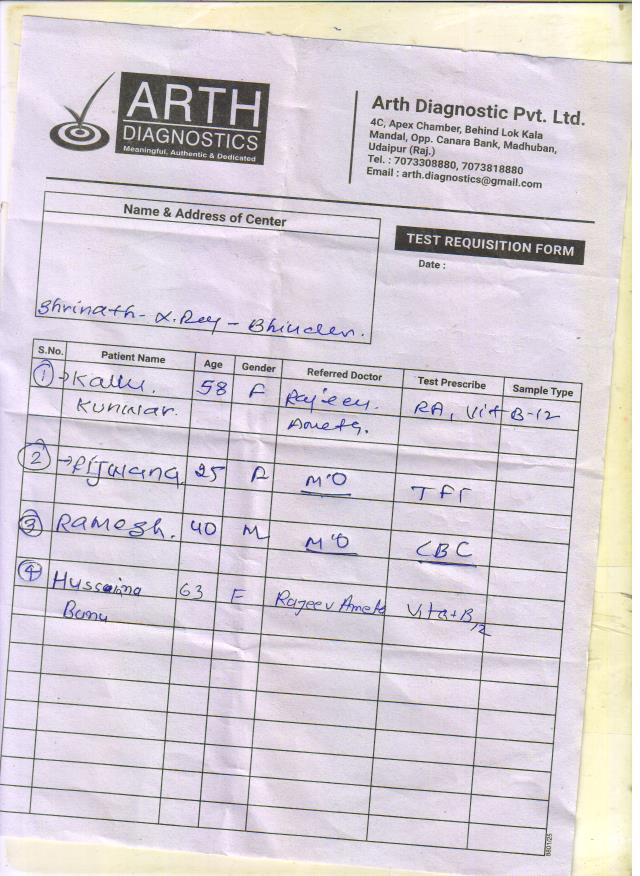 ARTH
DIAGNOSTICS
Meaningful, Authentic & Dedicated
Arth Diagnostic Pvt. Ltd.
4C, Apex Chamber, Behind Lok Kala
Mandal, Opp. Canara Bank, Madhuban,
Udaipur (Raj.)
Tel. : 7073308880, 7073818880
Email : arth.diagnostics@gmail.com
Name & Address of Center
TEST REQUISITION FORM
Date :
Shrinath - X.Ray - Bhinder.
S.No. Patient Name Age Gender Referred Doctor Test Prescribe Sample Type
1 → Kallu. 58 F Rajeev. RA, Vit B-12
Kunwar. Ameta.
2 → 25 M'O TFT
3 Ramesh. 40 M M'O CBC
4 Hussaina 63 F Rajeev Ameta Vita+B12
Banu
8801/25